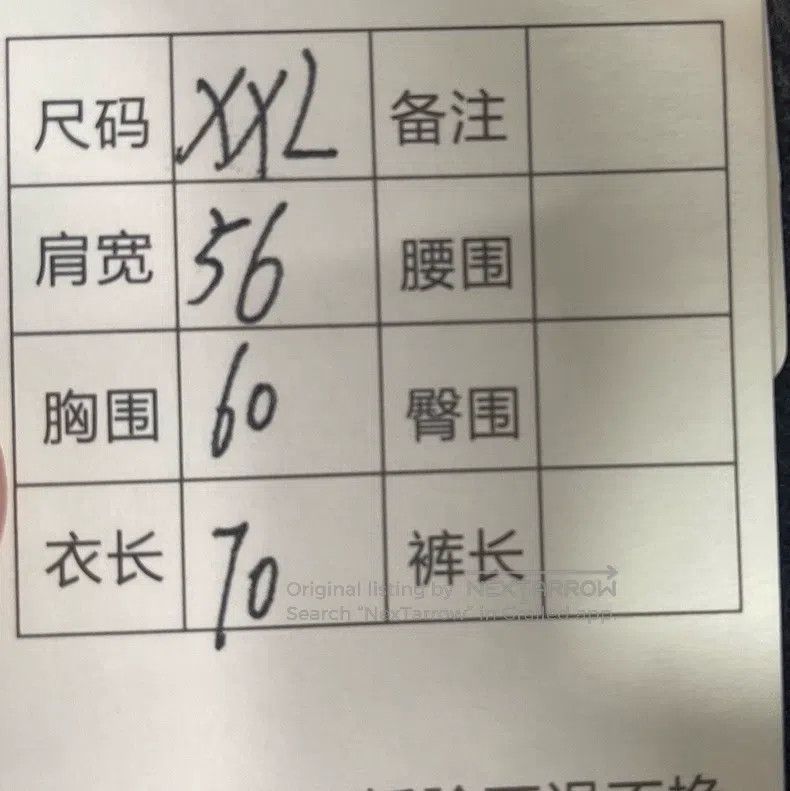 尺码 XXL 备注
肩宽 56 腰围
胸围 60 臀围
衣长 70 裤长
Original listing by NEXTARROW
Search "NexTarrow" in Grailed app.